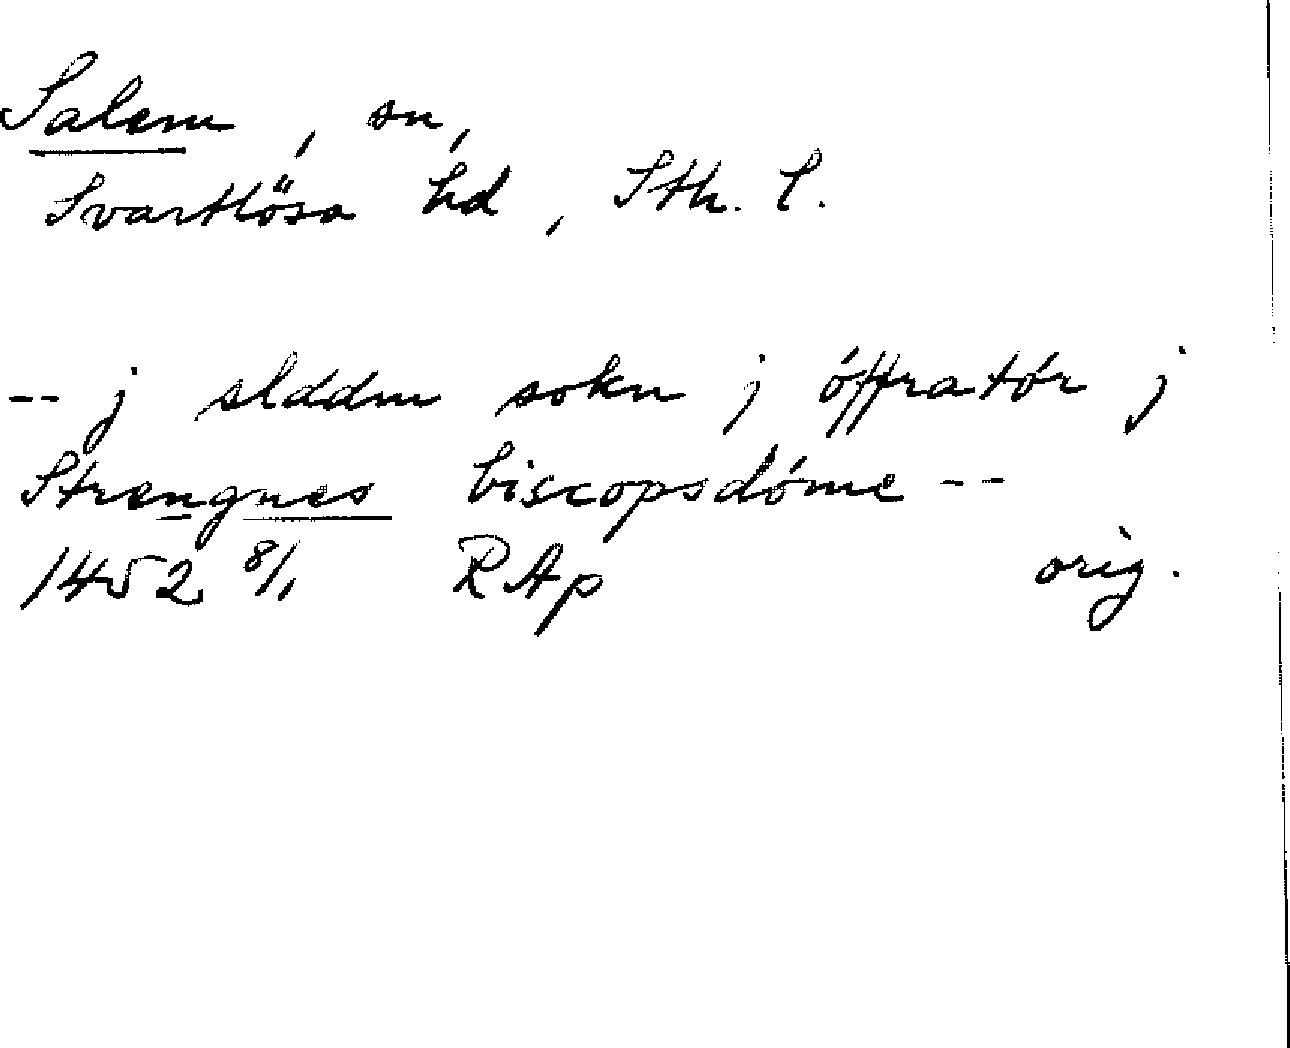 Salem, sn,
Svartlösa hd, Sth. l.
-- j slddm sokn j óffratór j
Strengnes biscopsdóme --
1452 8/1 RAp orig.